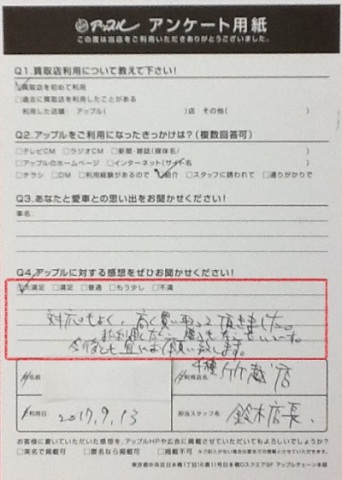 アップル アンケート用紙
この度は当店をご利用いただきありがとうございました。
Q1.買取店利用について教えて下さい!
買取店を初めて利用
□過去に買取店を利用したことがある
利用した店舗: アップル( )店 その他( )
Q2.アップルをご利用になったきっかけは?(複数回答可)
□テレビCM □ラジオCM □新聞・雑誌(媒体名/ )
□アップルのホームページ □インターネット(サイト名 )
□チラシ □DM □利用経験があるので 紹介 □スタッフに誘われて □通りがかりで
Q3.あなたと愛車との思い出をお聞かせください!
車名:
Q4.アップルに対する感想をぜひお聞かせください!
大満足 □満足 □普通 □もう少し □不満
対応もよく、高く買い取って頂きました。
今後とも宜しくお願い致します。
お名前
ご利用店名
ご利用日
2017.9.13
担当スタッフ名
鈴木店長
お客様に書いていただいた感想を、アップルHPや広告に掲載させていただいてもよろしいでしょうか?
□実名で掲載可 □匿名なら掲載可 □掲載不可
東京都中央区日本橋1丁目16番11号日本橋Dスクエア5F アップルチェーン本部